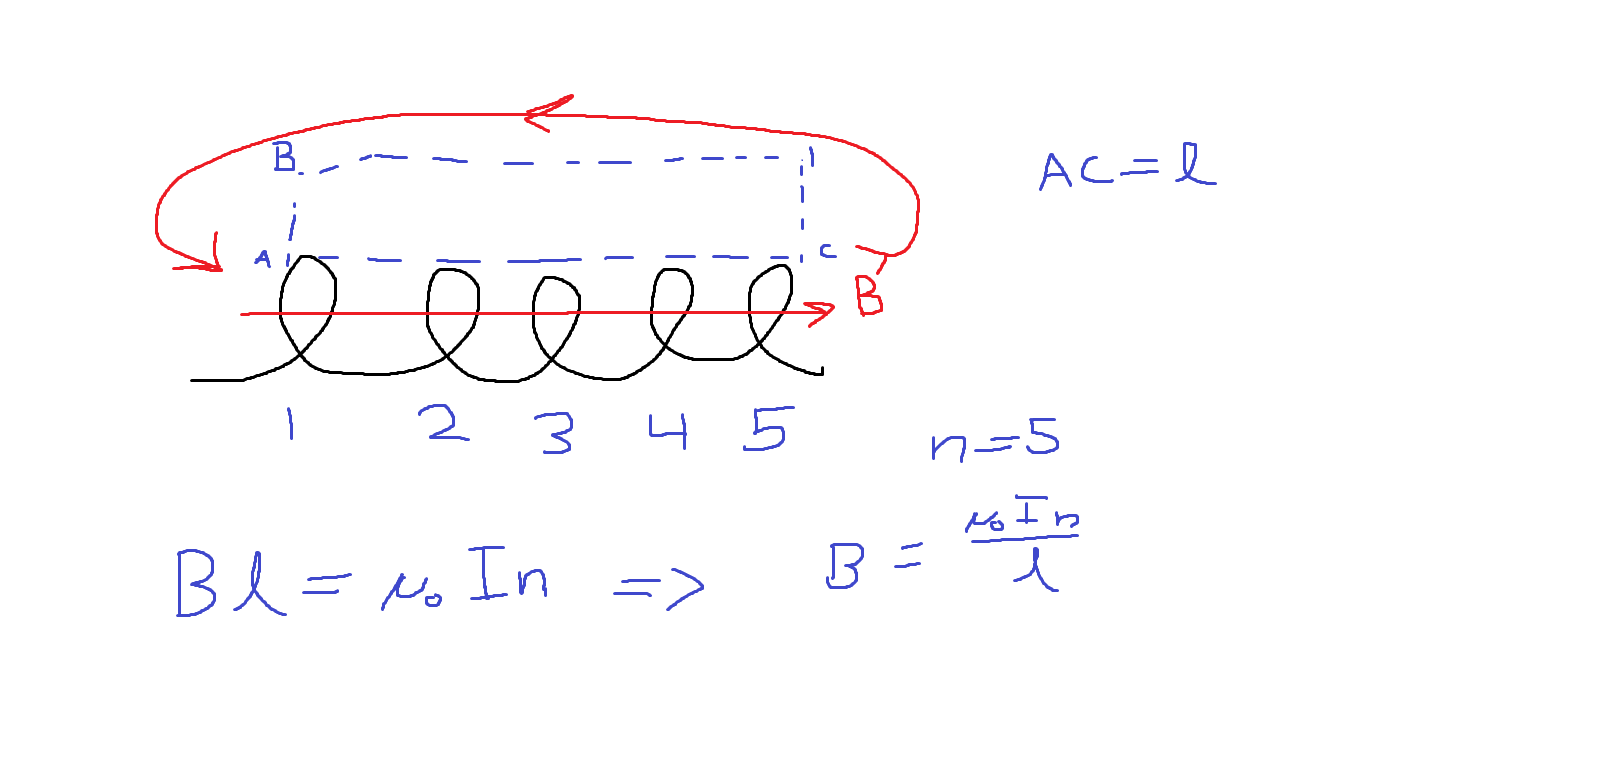 B
AC = l
A
C
B
1 2 3 4 5
n = 5
Bl = μ₀In => B = μ₀In / l